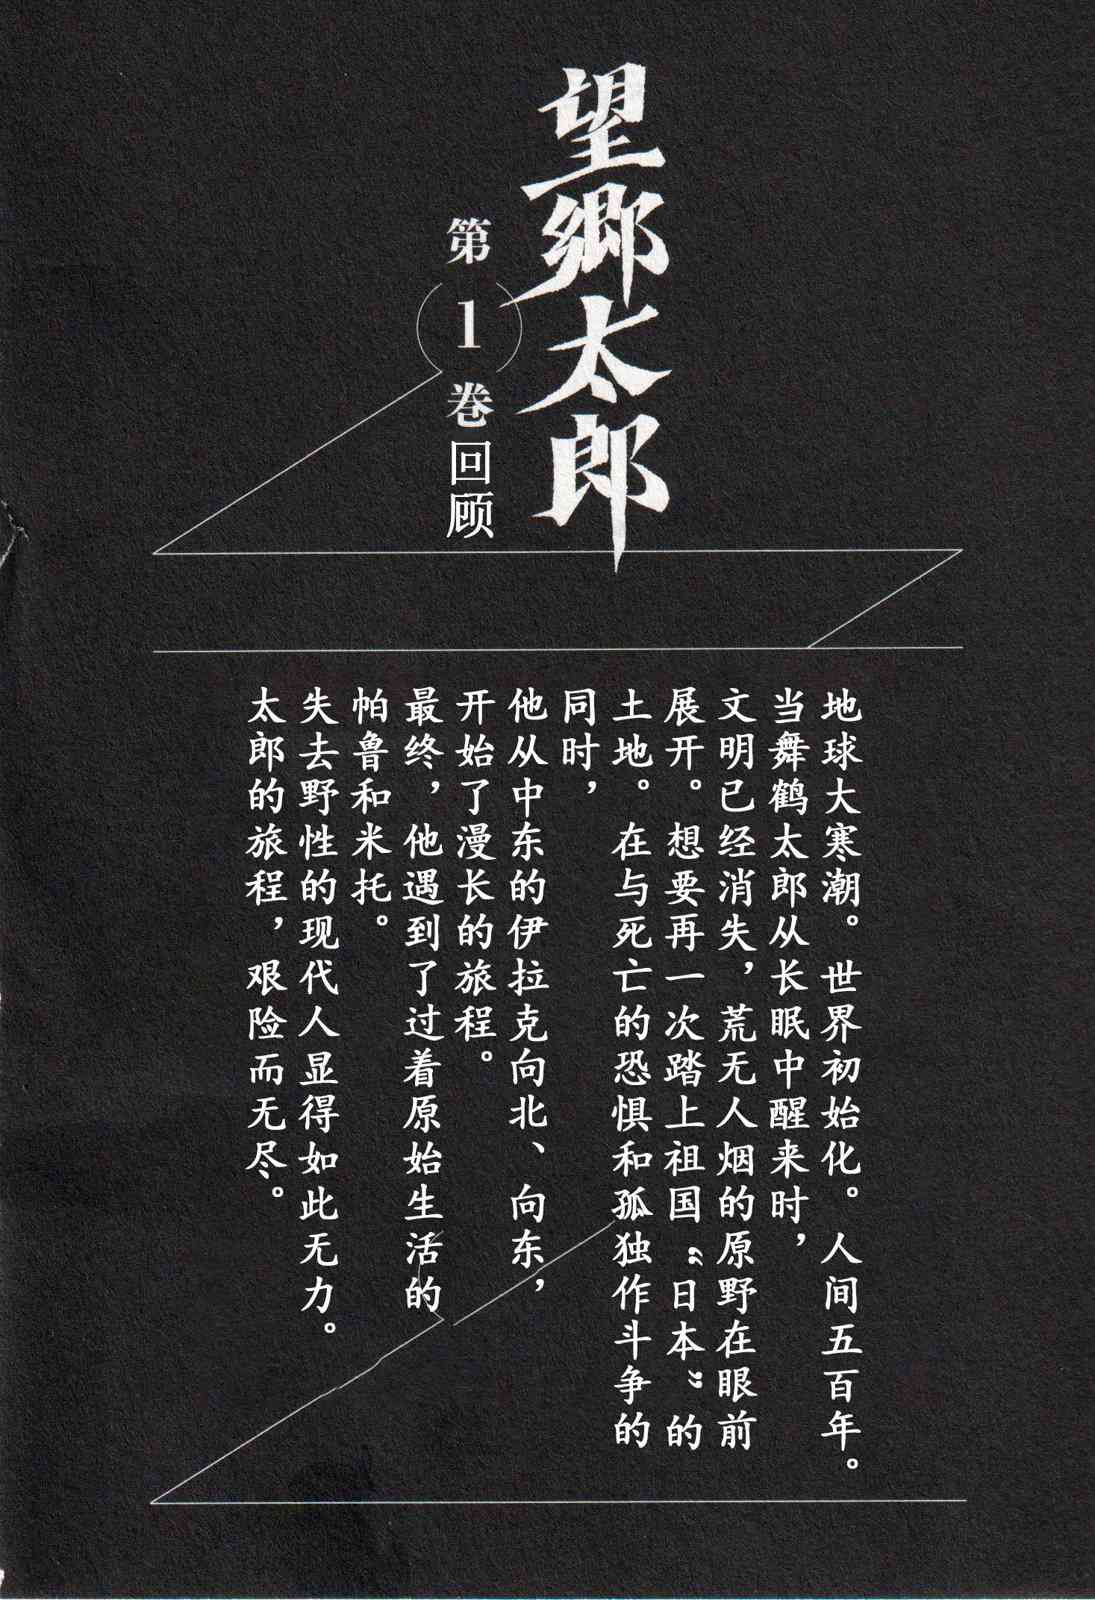 望郷太郎
第1巻回顾
地球大寒潮。世界初始化。人间五百年。
当舞鹤太郎从长眠中醒来时，
文明已经消失，荒无人烟的原野在眼前
展开。想要再一次踏上祖国“日本”的
土地。在与死亡的恐惧和孤独作斗争的
同时，
他从中东的伊拉克向北、向东，
开始了漫长的旅程。
最终，他遇到了过着原始生活的
帕鲁和米托。
失去野性的现代人显得如此无力。
太郎的旅程，艰险而无尽。